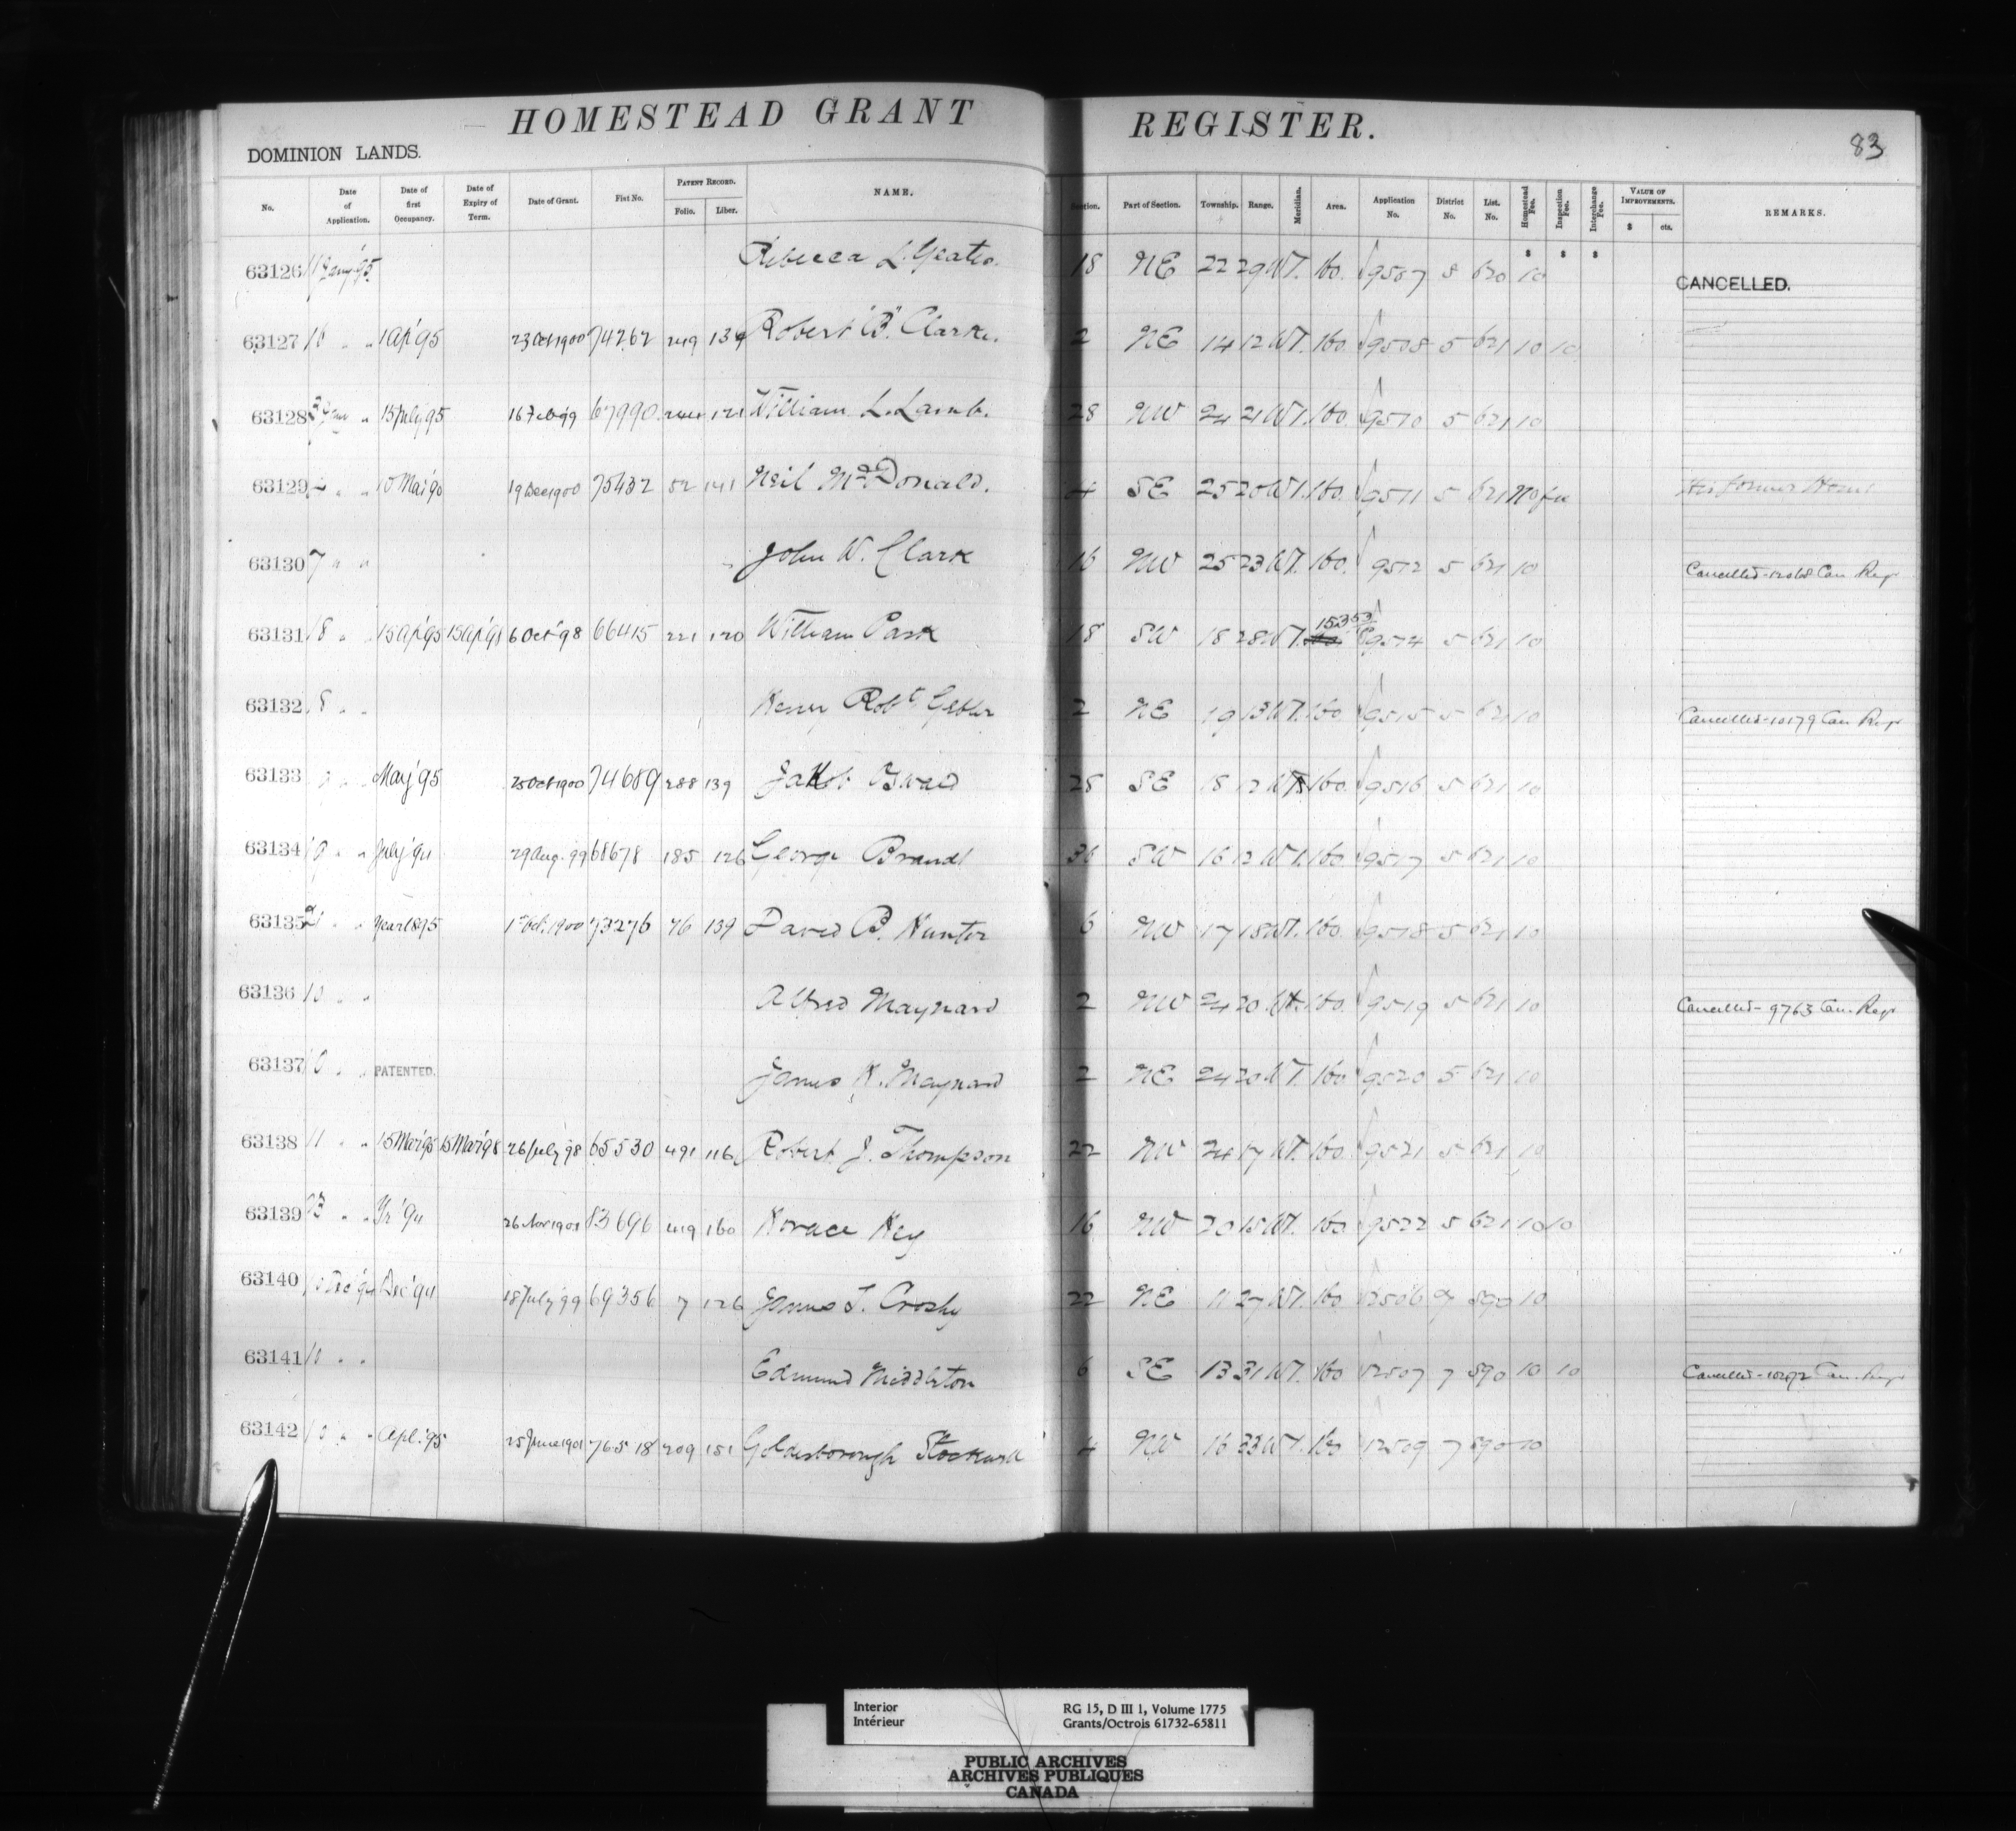 HOMESTEAD GRANT REGISTER.
83
DOMINION LANDS.
No. Date of Application. Date of first Occupancy. Date of Expiry of Term. Date of Grant. Fiat No. PATENT RECORD. Folio. Liber. NAME. Section. Part of Section. Township. Range. Meridian. Area. Application No. District No. List. No. Homestead Fee. Inspection Fee. Interchange Fee. VALUE OF IMPROVEMENTS. $ cts. REMARKS.
$ $ $
63126 Rebecca L. 18 NE 22 29 W1. 160. 9507 620 10 CANCELLED.
63127 10 " " 1 Ap'95 23 Oct 1900 74262 249 139 Robert "B" Clarke. 2 NE 14 12 W1. 160. 9508 5 621 10 10
63128 " 15 July 95 16 Feb 99 67990 121 William L. Lamb. 28 NW 24 21 W1. 160. 9510 5 621 10
63129 " " 19 Dec 1900 75432 52 141 Neil McDonald. 4 SE 25 20 W1. 160. 9511 5 621 No fee His former Home
63130 7 " " John W. Clark 16 NW 25 23 W1. 160. 9512 5 621 10 Cancelled-12068 Can Regr
63131 8 " " 15 Ap'95 15 Ap'98 6 Oct '98 66415 221 120 William Park 18 SW 18 28 W1. 153 53 9514 5 621 10
63132 8 " " Robt 2 NE 19 13 W1. 160 9515 5 621 10 Cancelled-10179 Can Regr
63133 9 " " May '95 25 Oct 1900 74689 288 139 Jakob 28 SE 18 12 W1 160. 9516 5 621 10
63134 9 " " July '94 29 Aug. 99 68678 185 126 George Brandt 36 SW 16 12 W1. 160 9517 5 621 10
63135 " " Year 1895 1st Oct. 1900 73276 76 139 David B. Hunter 6 NW 17 18 W1. 160. 9518 5 621 10
63136 10 " " Alfred Maynard 2 NW 24 20 W1. 160. 9519 5 621 10 Cancelled-9763 Can. Regr
63137 10 " " PATENTED. James H. Maynard 2 NE 24 20 W1. 160 9520 5 621 10
63138 11 " " 15 Mar '95 15 Mar '98 26 July 98 65530 491 116 Robert J. Thompson 22 NW 24 17 W1. 160. 9521 5 621 10
63139 " " Yr '94 26 Nov 1901 83696 419 160 Horace Key 16 NW 20 15 W1. 160 9522 5 621 10 10
63140 10 Dec '94 Dec '94 18 July '99 69356 7 126 James T. Crosby 22 NE 11 27 W1. 160 12506 7 590 10
63141 10 " " Edmund Middleton 6 SE 13 31 W1. 160 12507 7 590 10 10 Cancelled-10272 Can. Regr
63142 10 " " Apl. '95 25 June 1901 76518 209 151 Goldesborough 4 NW 16 33 W1. 160 12509 7 590 10
Interior RG 15, D III 1, Volume 1775
Intérieur Grants/Octrois 61732-65811
PUBLIC ARCHIVES
ARCHIVES PUBLIQUES
CANADA